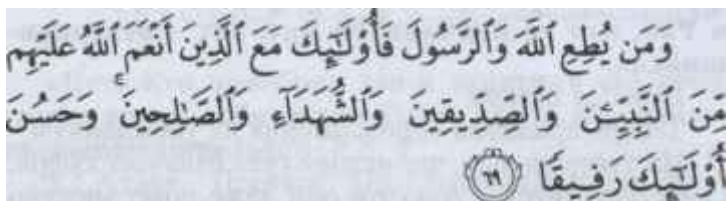 وَمَن يُطِعِ ٱللَّهَ وَٱلرَّسُولَ فَأُو۟لَـٰٓئِكَ مَعَ ٱلَّذِينَ أَنْعَمَ ٱللَّهُ عَلَيْهِم
مِّنَ ٱلنَّبِيِّـۧنَ وَٱلصِّدِّيقِينَ وَٱلشُّهَدَآءِ وَٱلصَّـٰلِحِينَ ۚ وَحَسُنَ
أُو۟لَـٰٓئِكَ رَفِيقًا ٦٩